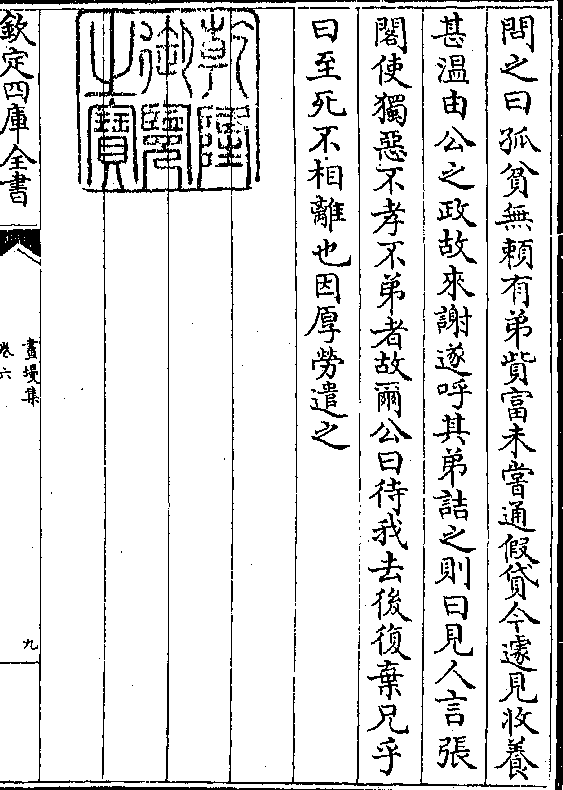 問之曰孤貧無頼有弟貲富未嘗通假貸今遽見收養
甚溫由公之政故來謝遂呼其弟詰之則曰見人言張
閣使獨惡不孝不弟者故爾公曰待我去後復棄兄乎
曰至死不相離也因厚勞遣之
乾隆御覽之寶
欽定四庫全書
畫墁集
卷六
九